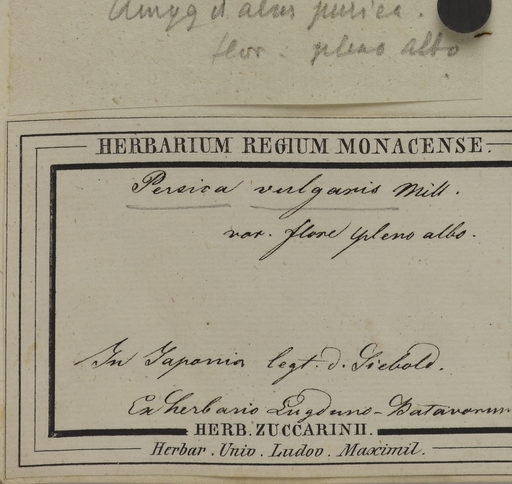 Amygdalus persica.
flor. pleno albo
HERBARIUM REGIUM MONACENSE.
Persica vulgaris Mill.
var. flore pleno albo.
In Japonia legt. d. Siebold.
Ex herbario Lugduno-Batavorum
HERB. ZUCCARINII.
Herbar. Univ. Ludov. Maximil.